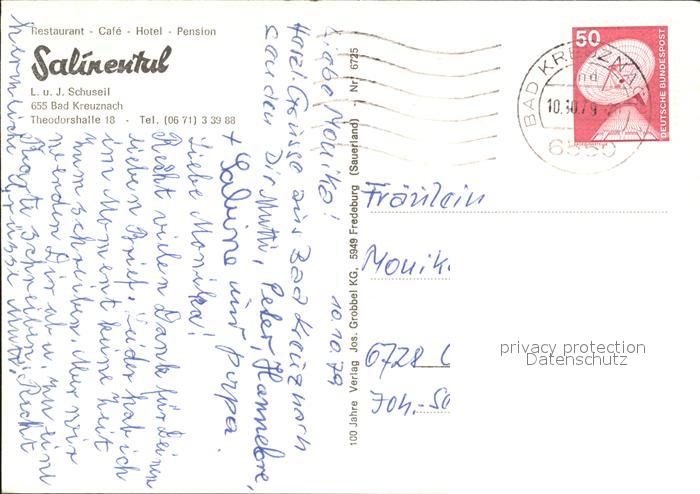 Restaurant - Café - Hotel - Pension
Salinental
L. u. J. Schuseil
655 Bad Kreuznach
Theodorshalle 18 - Tel. (06 71) 3 39 88
10.10.79
Liebe Monika!
Herzl. Grüsse aus Bad Kreuznach
senden Dir Mutti, Peter, Hannelore,
+ Sabine und Papa.
Liebe Monika!
Recht vielen Dank für Deinen
lieben Brief. Leider hab ich
im Moment keine Zeit
zum schreiben. Aber wir
werden Dir ab u. zu eine
Karte schreiben. Recht
herzliche Grüsse Mutti
100 Jahre Verlag Jos. Grobbel KG. 5949 Fredeburg (Sauerland) - Nr. 6725
50
DEUTSCHE BUNDESPOST
BAD KREUZNAC
10.10.79
6550
Fräulein
Monik
6728
Joh.-
privacy protection
Datenschutz